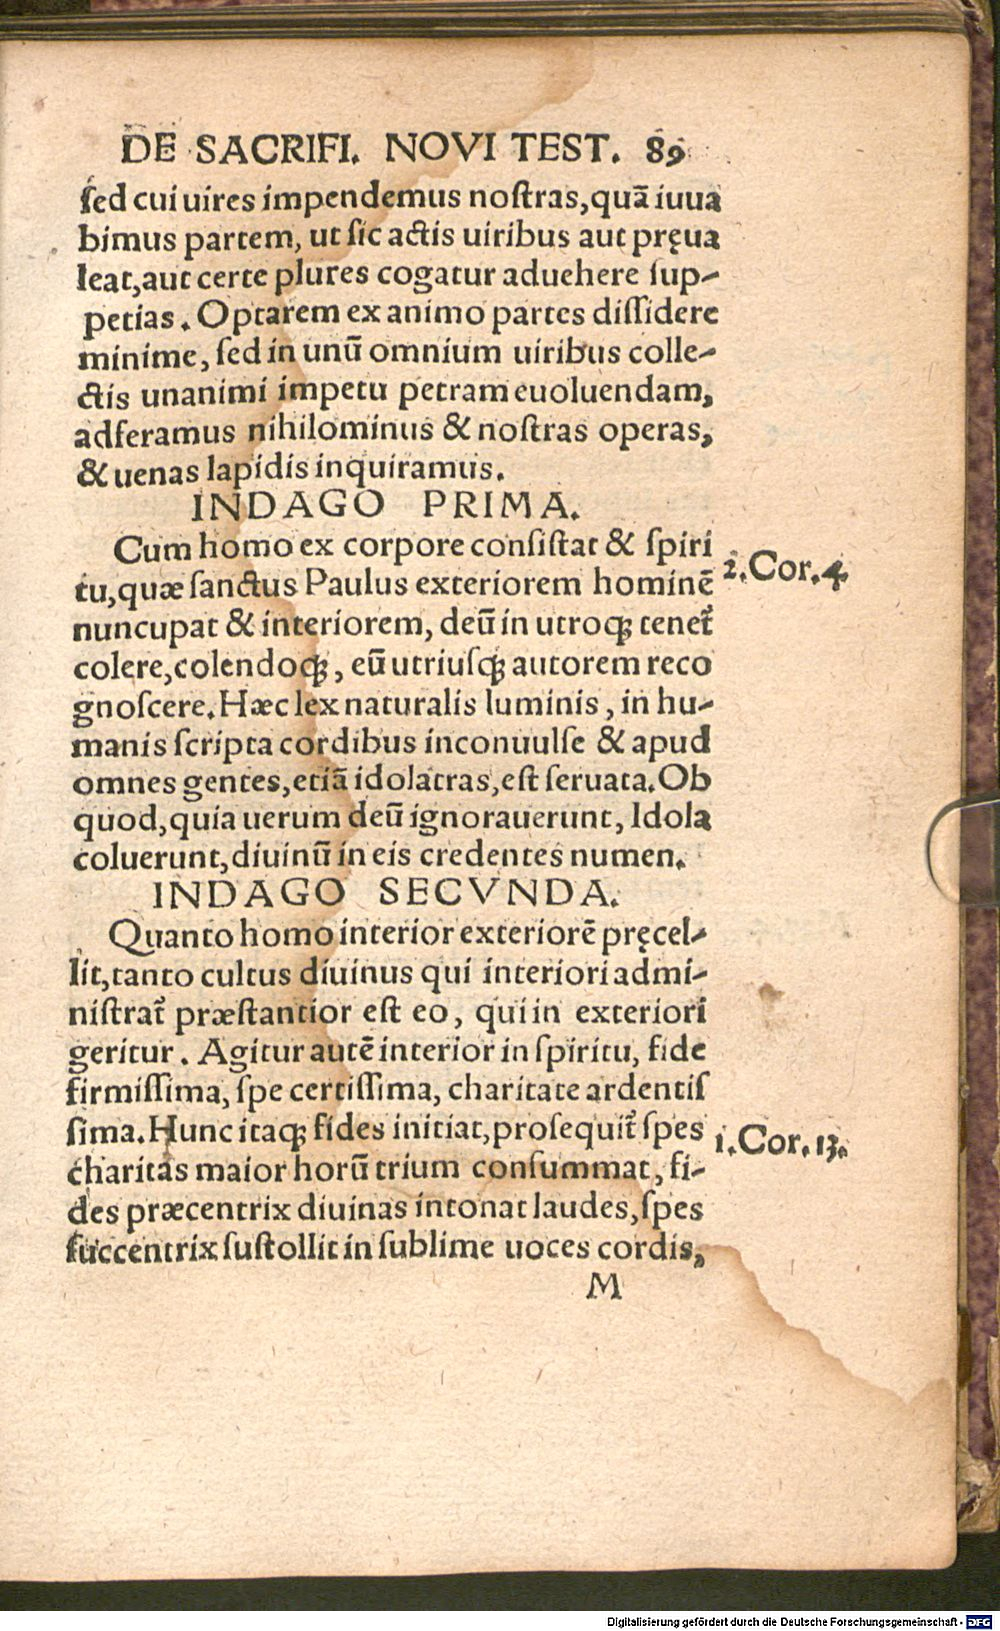 DE SACRIFI. NOVI TEST. 89
ſed cui uires impendemus noſtras, quā iuua
bimus partem, ut ſic actis uiribus aut pręua
leat, aut certe plures cogatur aduehere ſup-
petias. Optarem ex animo partes diſſidere
minime, ſed in unū omnium uiribus colle-
ctis unanimi impetu petram euoluendam,
adferamus nihilominus & noſtras operas,
& uenas lapidis inquiramus.
INDAGO PRIMA.
Cum homo ex corpore conſiſtat & ſpiri
tu, quæ ſanctus Paulus exteriorem hominē
2. Cor. 4.
nuncupat & interiorem, deū in utroqꝫ tenet᷑
colere, colendoqꝫ, eū utriuſqꝫ autorem reco
gnoſcere. Hæc lex naturalis luminis, in hu-
manis ſcripta cordibus inconuulſe & apud
omnes gentes, etiā idolatras, eſt ſeruata. Ob
quod, quia uerum deū ignorauerunt, Idola
coluerunt, diuinū in eis credentes numen.
INDAGO SECVNDA.
Quanto homo interior exteriorē pręcel-
lit, tanto cultus diuinus qui interiori admi-
niſtrat᷑ præſtantior eſt eo, qui in exteriori
geritur. Agitur autē interior in ſpiritu, fide
firmiſſima, ſpe certiſſima, charitate ardentiſ
ſima. Hunc itaqꝫ fides initiat, proſequit᷑ ſpes
1. Cor. 13.
charitas maior horū trium conſummat, fi-
des præcentrix diuinas intonat laudes, ſpes
ſuccentrix ſuſtollit in ſublime uoces cordis,
M
Digitalisierung gefördert durch die Deutsche Forschungsgemeinschaft - DFG